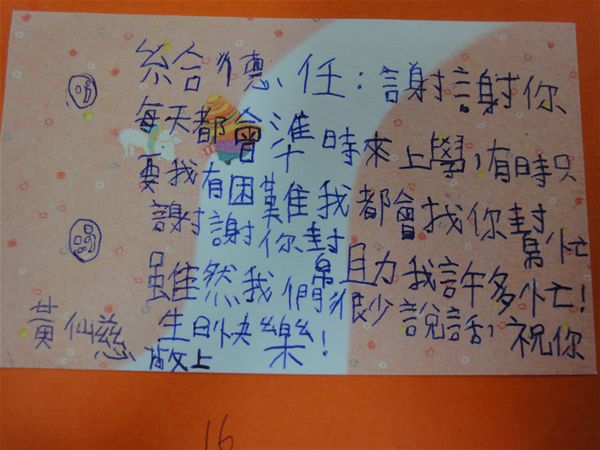 給德任：謝謝你
每天都會準時來上學，有時只
要我有困難我都會找你幫忙
謝謝你幫助我許多忙！
雖然我們很少說話，祝你
生日快樂！
黃仙慈敬上
16